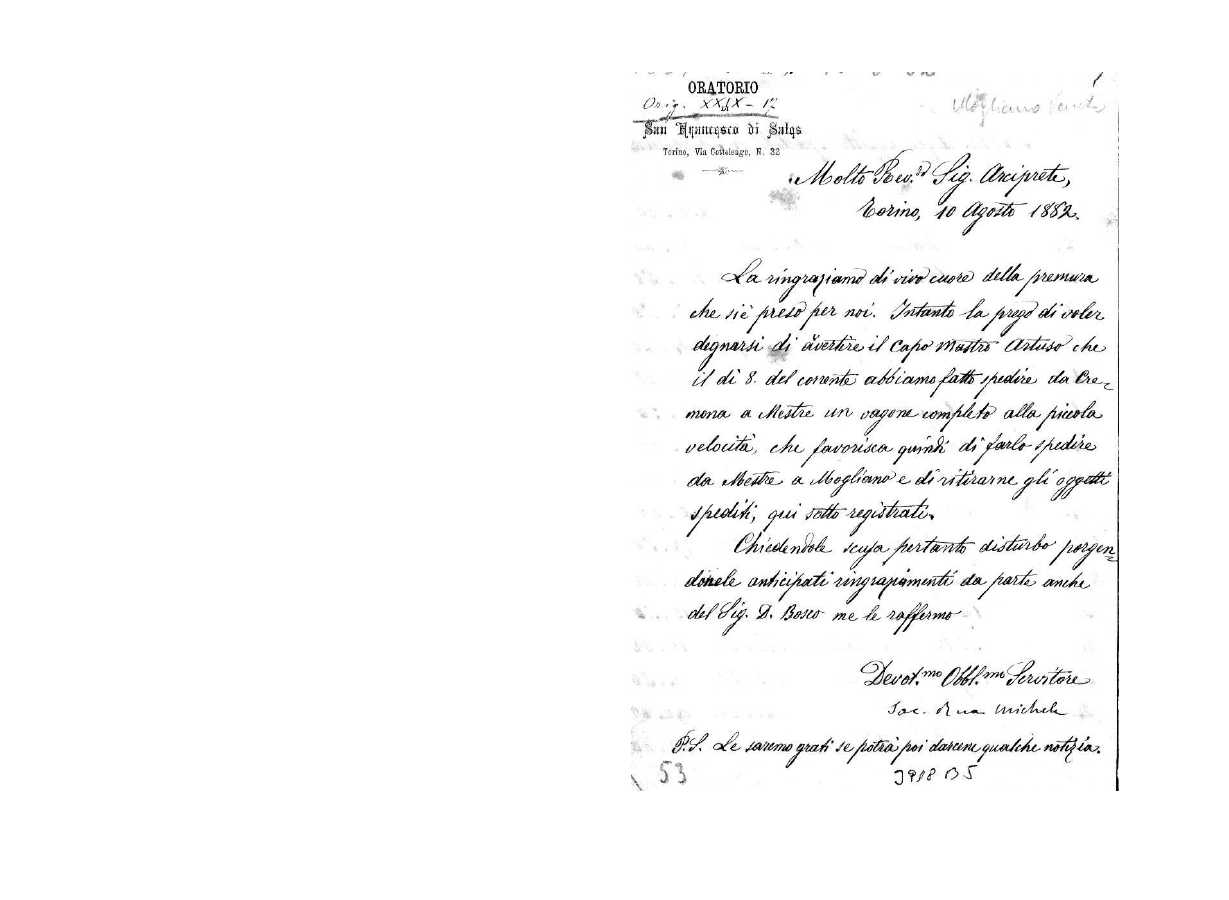 ORATORIO
Orig. XXIX - 17
DI
San Francesco di Sales
Torino, Via Cottolengo, N. 32
Mogliano Veneto
Molto Rev.d Sig. Arciprete,
Torino, 10 Agosto 1882.
La ringraziamo di vivo cuore della premura
che si è preso per noi. Intanto la prego di voler
degnarsi di avertire il Capo Mastro Artuso che
il di 8. del corrente abbiamo fatto spedire da Cre=
mona a Mestre un vagone completo alla piccola
velocità, che favorisca quindi di farlo spedire
da Mestre a Mogliano e di ritirarne gli oggetti
spediti, qui sotto registrati.
Chiedendole scusa pertanto disturbo porgen=
donele anticipati ringraziamenti da parte anche
del Sig. D. Bosco me le raffermo
Devot.mo Obbl.mo Servitore
Sac. Rua Michele
P.S. Le saremo grati se potrà poi darcene qualche notizia.
53
3918 B5